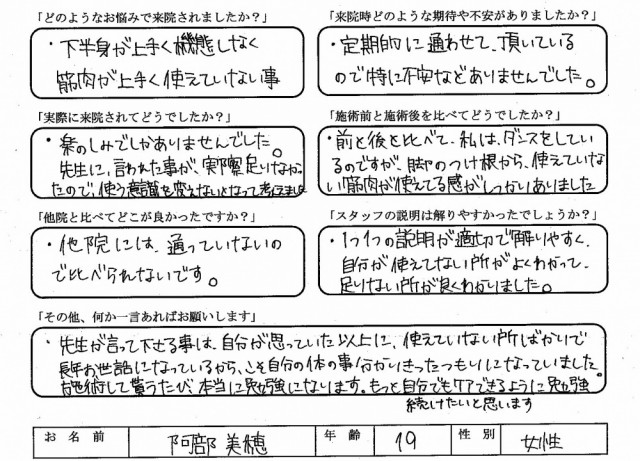 「どのようなお悩みで来院されましたか？」
・下半身が上手く機態しなく
筋肉が上手く使えていない事
「来院時どのような期待や不安がありましたか？」
・定期的に通わせて頂いている
ので特に不安などありませんでした。
「実際に来院されてどうでしたか？」
・楽のしみでしかありませんでした。
先生に、言われた事が、実際足りなかっ
たので、使う意識を変えないとなって考えました
「施術前と施術後を比べてどうでしたか？」
・前と後を比べて、私は、ダンスをしてい
るのですが、脚のつけ根から、使えていな
い筋肉が使えてる感がしっかりありました
「他院と比べてどこが良かったですか？」
・他院には、通っていないの
で比べられないです。
「スタッフの説明は解りやすかったでしょうか？」
・1つ1つの説明が適切で解りやすく、
自分が使えてない所がよくわかって、
足りない所が良くわかりました。
「その他、何か一言あればお願いします」
・先生が言って下せる事は、自分が思っていた以上に、使えていない所ばかりで
長年お世話になっているから、こそ自分の体の事分かりきったつもりになっていました。
施術して貰うたび、本当に勉強になります。もっと自分でもケアできるように勉強
続けたいと思います
お名前 阿部美穂 年齢 19 性別 女性